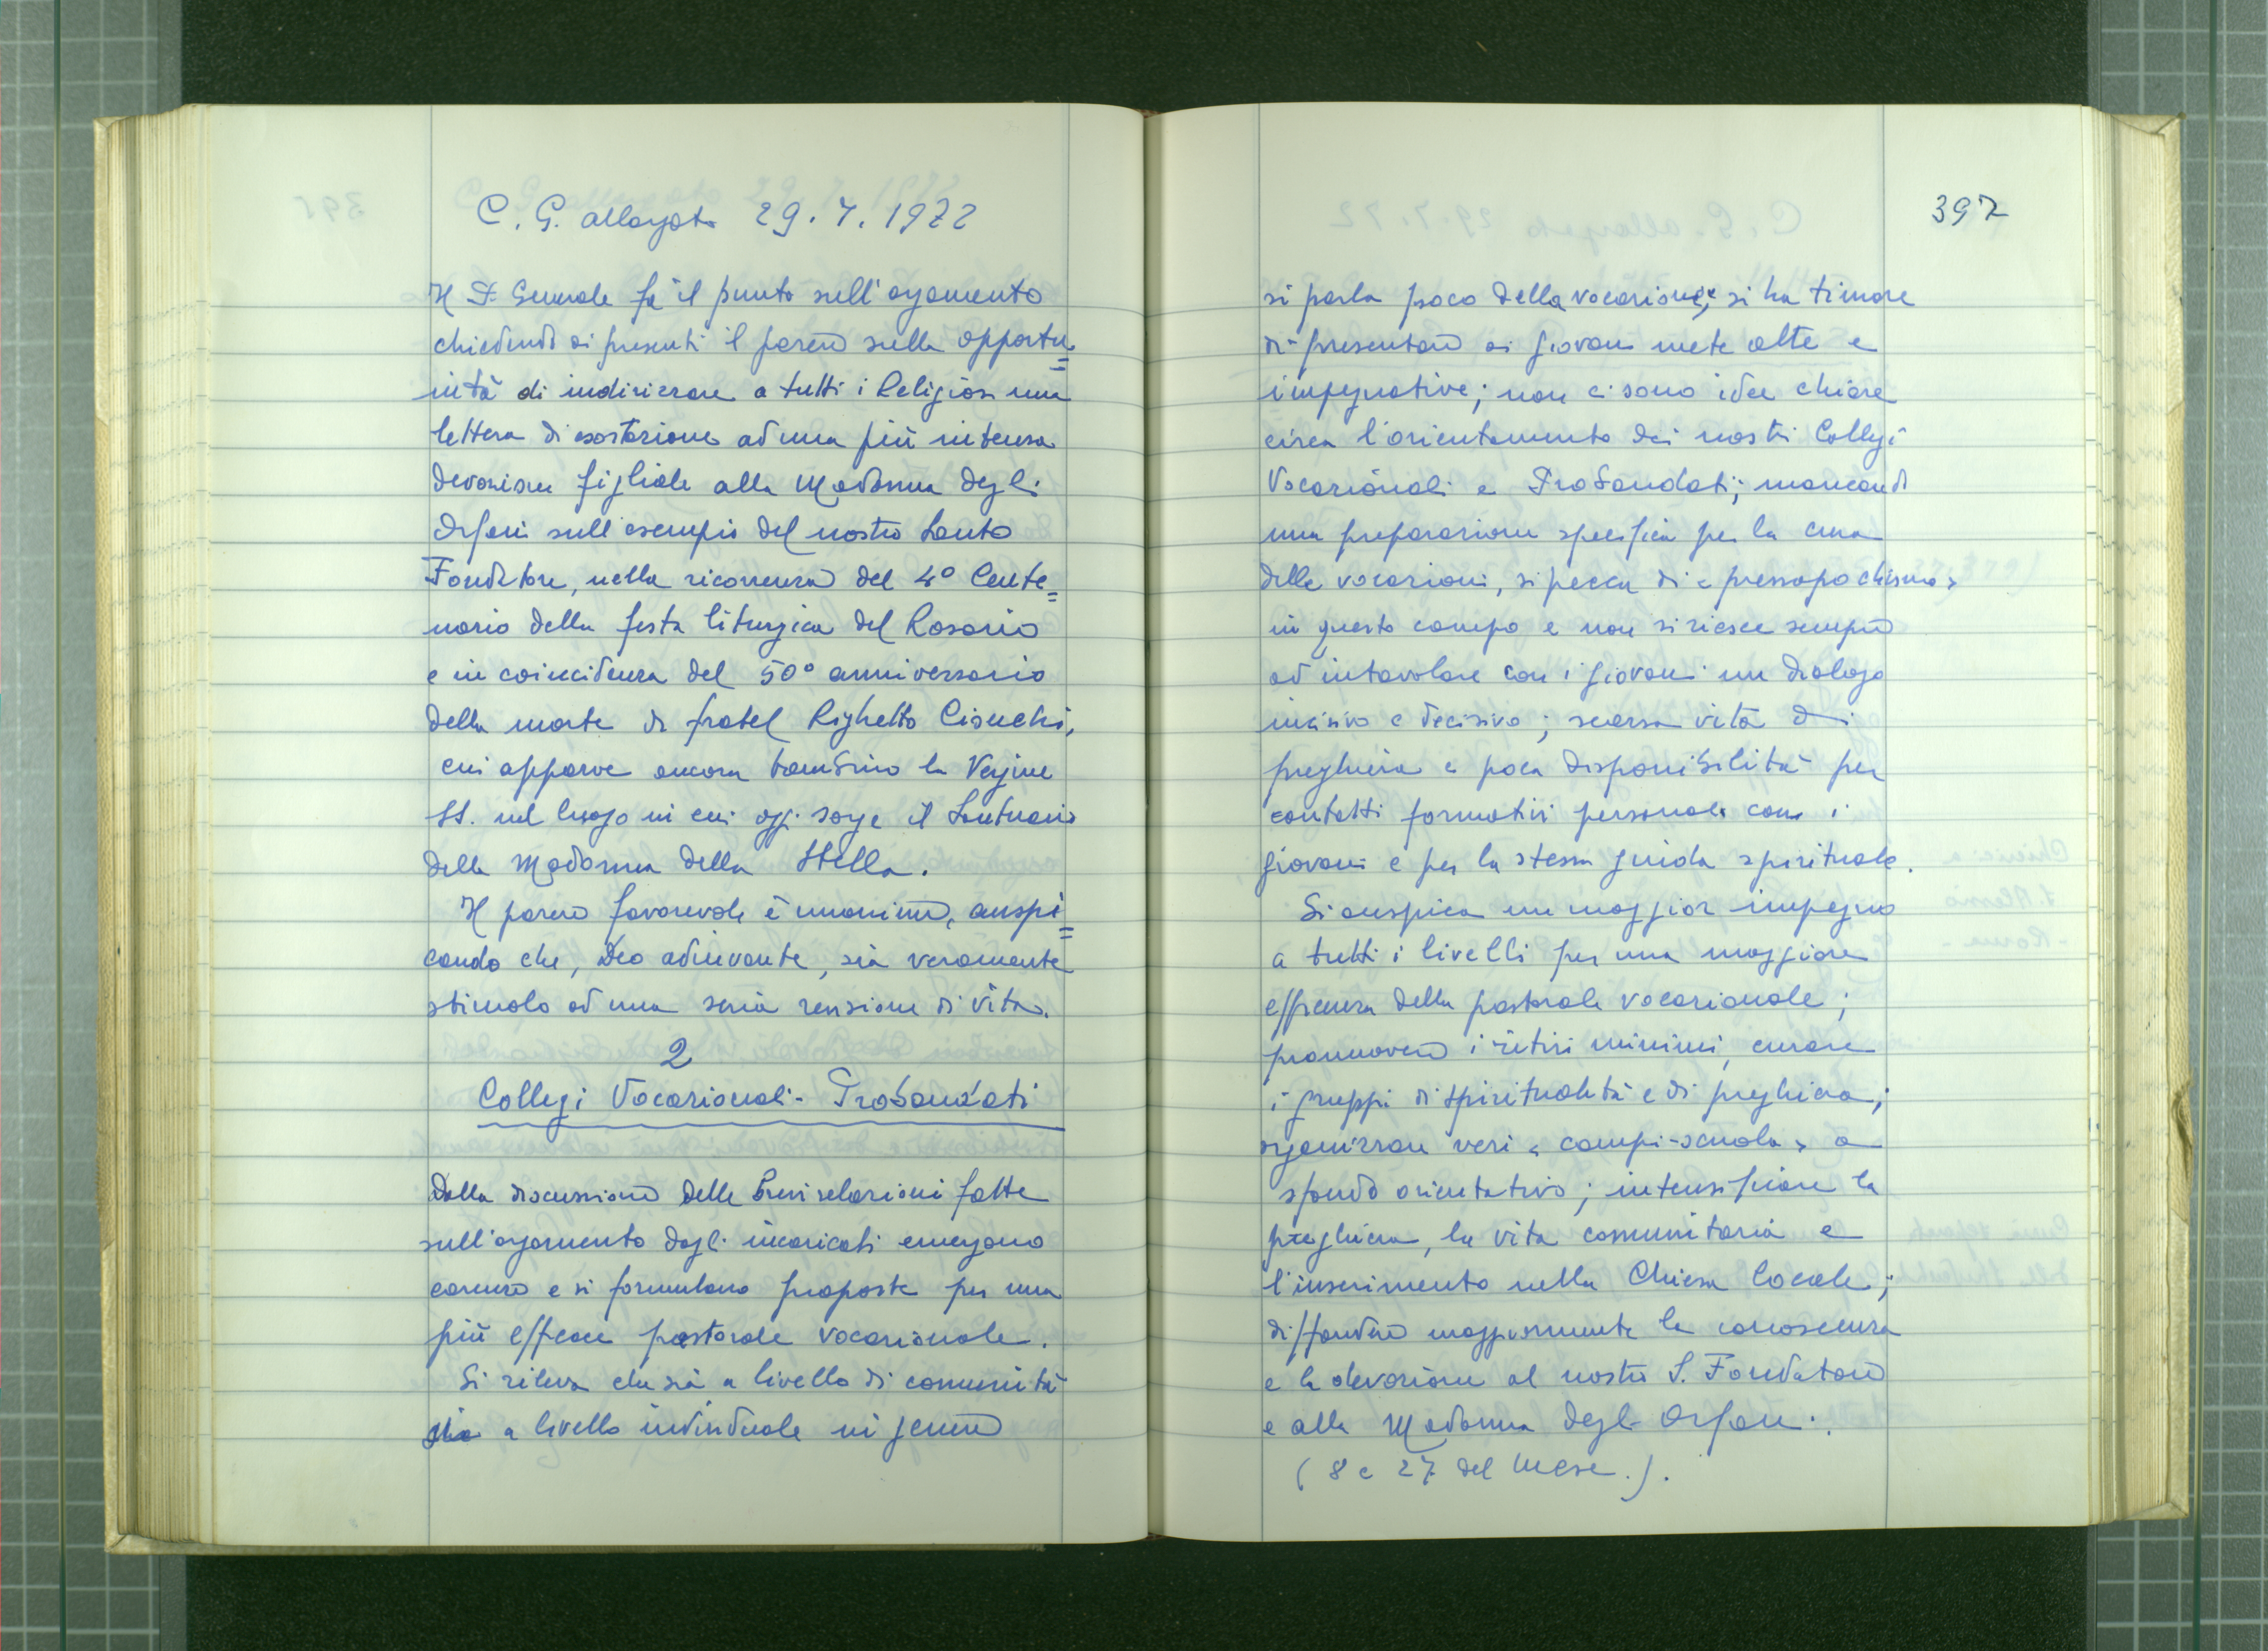 C. G. allargato 29.7.1972
Il P. Generale fa il punto sull'argomento
chiedendo ai presenti il parere sulla opportu=
nità di indirizzare a tutti i Religiosi una
lettera di esortazione ad una più intensa
devozione figliale alla Madonna degli
Orfani sull'esempio del nostro Santo
Fondatore, nella ricorrenza del 4° Cente=
nario della festa liturgica del Rosario
e in coincidenza del 50° anniversario
della morte di fratel Righetto Cionchi,
cui apparve ancora bambino la Vergine
SS. nel luogo in cui oggi sorge il Santuario
della Madonna della Stella.
Il parere favorevole è unanime, auspi=
cando che, Deo adiuvante, sia veramente
stimolo ad una seria revisione di vita.
2
Collegi Vocazionali - Probandati
Dalla discussione delle brevi relazioni fatte
sull'argomento dagli incaricati emergono
carenze e si formulano proposte per una
più efficace pastorale vocazionale.
Si rileva che sia a livello di comunità
sia a livello individuale in genere
397
si parla poco della vocazione; si ha timore
di presentare ai giovani mete alte e
impegnative; non ci sono idee chiare
circa l'orientamento dei nostri Collegi
Vocazionali e Probandati; mancando
una preparazione specifica per la cura
delle vocazioni, si pecca di «pressapochismo»
in questo campo e non si riesce sempre
ad intavolare con i giovani un dialogo
incisivo e decisivo; scarsa vita di
preghiera e poca disponibilità per
contatti formativi personali con i
giovani e per la stessa guida spirituale.
Si auspica un maggior impegno
a tutti i livelli per una maggiore
efficienza della pastorale vocazionale;
promuovere i ritiri minimi, curare
i gruppi di spiritualità e di preghiera;
organizzare veri «campi-scuola» a
sfondo orientativo; intensificare la
preghiera, la vita comunitaria e
l'inserimento nella Chiesa locale;
diffondere maggiormente la conoscenza
e la devozione al nostro S. Fondatore
e alla Madonna degli Orfani.
(8 e 27 del mese.).